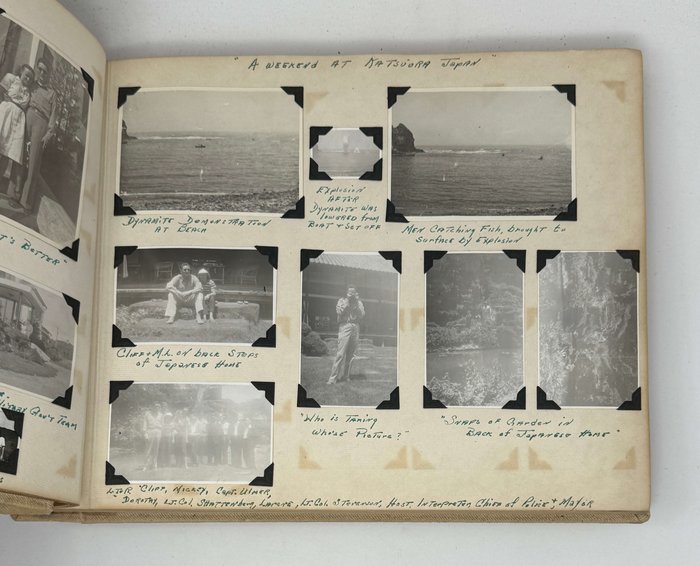 "A WEEKEND AT KATSUURA JAPAN"
DYNAMITE DEMONSTRATION
AT BEACH
EXPLOSION
AFTER
DYNAMITE WAS
LOWERED FROM
BOAT & SET OFF
MEN CATCHING FISH, BROUGHT TO
SURFACE BY EXPLOSION
CLIFF & M.L. ON BACK STEPS
OF JAPANESE HOME
"WHO IS TAKING
WHOSE PICTURE?"
"SNAPS OF GARDEN IN
BACK OF JAPANESE HOME"
L TO R "CLIFF, MICKEY, CAPT. ULMER,
DOROTHY, LT. COL. LT. COL. HOST, INTERPRETER, CHIEF OF POLICE & MAYOR
T'S BOTTER"
GOV'T TEAM